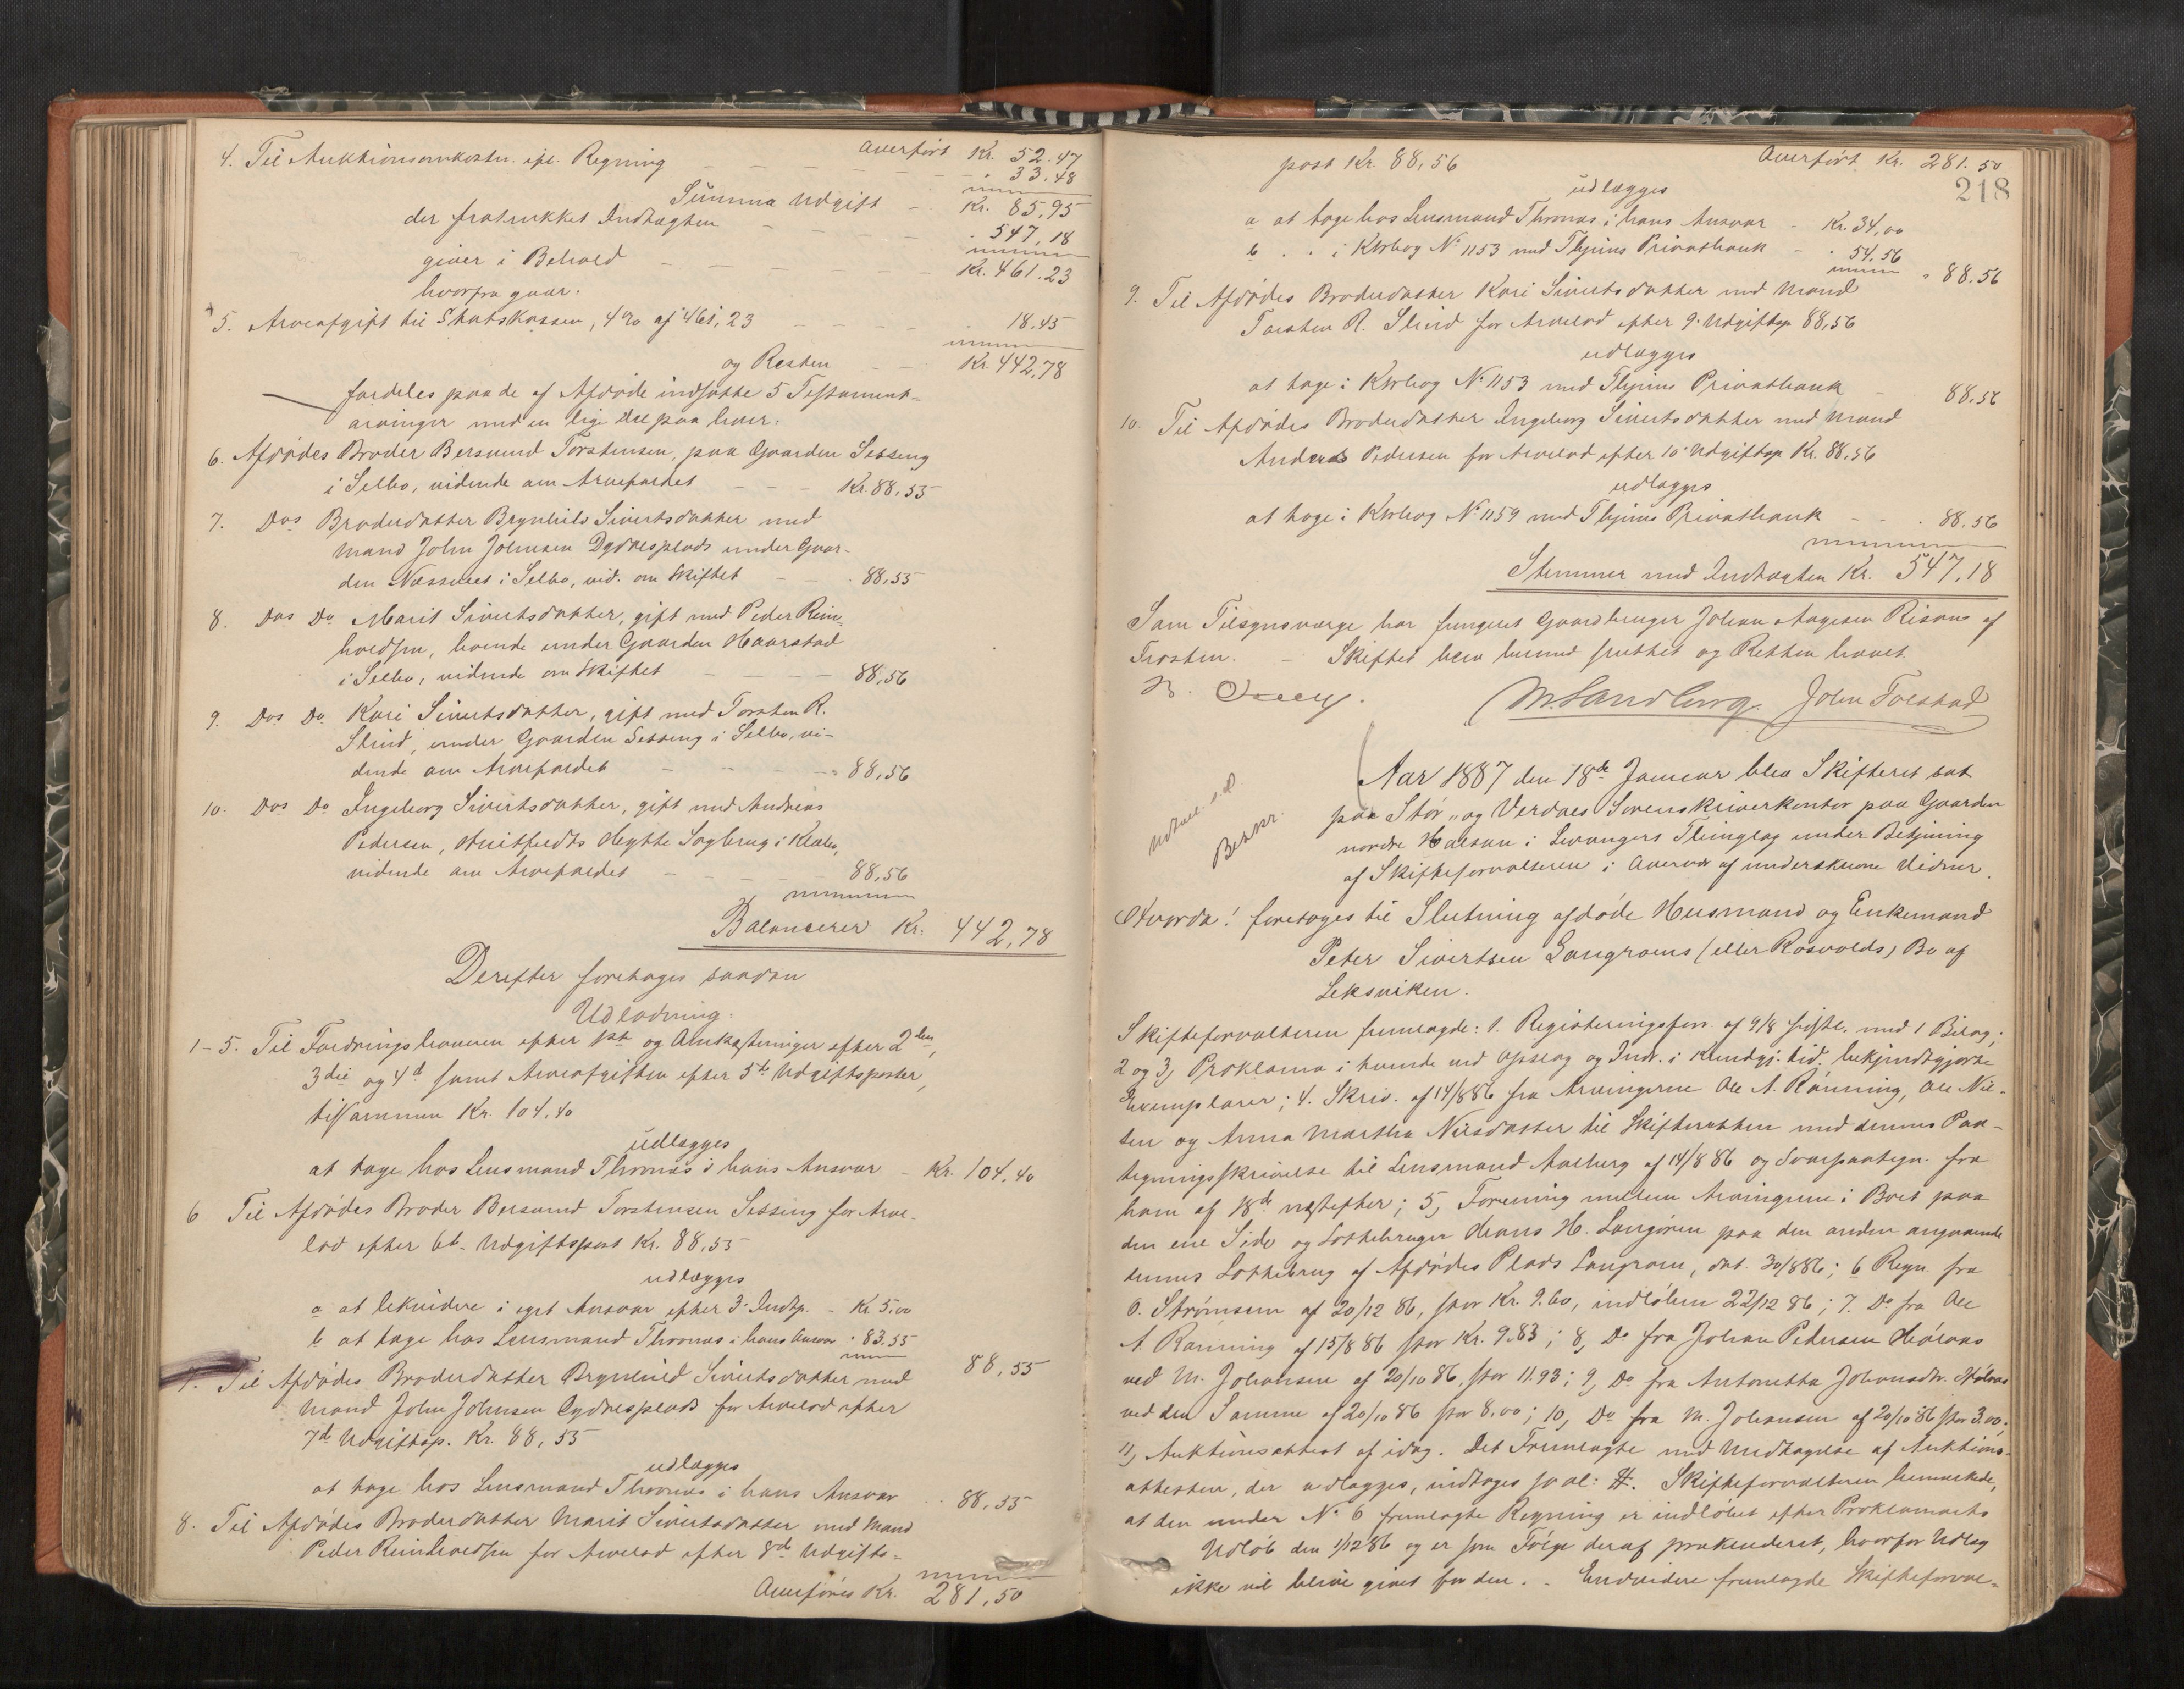 Overført Kr. 52.47
4. Til Auktionsomkostn. ifl. Regning - 33.48
Summa Udgift - Kr. 85,95
der fratrukket Indtægten - 547,18
giver i Behold - Kr. 461.23
hvorfra gaar:
5. Arveafgift til Statskassen, 4% af 461,23 - 18.45
og Resten - Kr. 442,78
fordeles paa de af Afdøde indsatte 5 Testament-
arvinger med en lige Del paa hver:
6. Afdødes Broder Bersvend Torstensen, paa Gaarden Sesseng
i Selbo, vidende om Arvefaldet - Kr. 88,55
7. Dos Broderdatter Brynhild Sivertsdatter med
Mand John Johnsen Dydalsplads under Gaar-
den Næsset i Selbo, vid. om Skiftet - 88,55
8. Dos Do Marit Sivertsdatter, gift med Peder Rein-
holdsen, boende under Gaarden Haarstad
i Selbo, vidende om Skiftet - 88,56
9. Dos Do Kari Sivertsdatter, gift med Torsten R.
Slind, under Gaarden Sesseng i Selbo, vi-
dende om Arvefaldet - 88,56
10. Dos Do Ingeborg Sivertsdatter, gift med Andreas
Pedersen, Huitfeldts Hytte Sagbrug i Klæbo,
vidende om Arvefaldet - 88,56
Balancerer Kr. 442,78
Derefter foretages saadan
Udlodning:
1-5. Til Fordringshaveren efter 1ste og Omkostninger efter 2den,
3die og 4de samt Arveafgiften efter 5te Udgiftsposter,
tilsammen Kr. 104.40
udlægges
at tage hos Lensmand Thronæs i hans Ansvar - Kr. 104.40
6 Til Afdødes Broder Bersvend Torstensen Sesseng for Arve-
lod efter 6te Udgiftspost Kr. 88,55
udlægges
a at likvidere i eget Ansvar efter 3. Indtp. - Kr. 5.00
b at tage hos Lensmand Thronæs i hans Ansvar - 83.55
88,55
7. Til Afdødes Broderdatter Brynhild Sivertsdatter med
Mand John Johnsen Dydalsplads for Arvelod efter
7de Udgiftsp. Kr. 88,55
udlægges
at tage hos Lensmand Thronæs i hans Ansvar - 88,55
8. Til Afdødes Broderdatter Marit Sivertsdatter med Mand
Peder Reinholdsen for Arvelod efter 8de Udgifts-
Overføres Kr. 281,50
Overført Kr. 281.50
218
post Kr. 88,56
udlægges
a at tage hos Lensmand Thronæs i hans Ansvar - Kr. 34,00
b - - i Ktrbog No 1153 med Thjems Privatbank - 54,56
88.56
9. Til Afdødes Broderdatter Kari Sivertsdatter med Mand
Torsten R. Slind for Arvelod efter 9. Udgiftsp 88,56
udlægges
at tage i Ktrbog No 1153 med Thjems Privatbank - 88.56
10. Til Afdødes Broderdatter Ingeborg Sivertsdatter med Mand
Andreas Pedersen for Arvelod efter 10. Udgiftsp Kr. 88,56
udlægges
at tage i Ktrbog No 1159 med Thjems Privatbank - 88.56
Stemmer med Indtægten Kr. 547,18
Som Tilsynsværge har fungeret Gaardbruger Johan Aagesen Risan af
Frosten. - Skiftet blev hermed sluttet og Retten hævet.
M. Sandberg. John Tolstad
Aar 1887 den 18de Januar blev Skifteret sat
paa Stør- og Værdals Sorenskriverkontor paa Gaarden
nordre Halsan i Levangers Thinglag under Betjening
af Skifteforvalteren i Overvær af underskrevne Vidner.
Beskr.
Hvorda! foretoges til Slutning afdøde Husmand og Enkemand
Peter Sivertsen Langroens (eller Rosvolds) Bo af
Leksviken.
Skifteforvalteren fremlagde: 1. Registreringsforr. af 9/8 sidstl. med 1 Bilag;
2 og 3, Proklama i tvende ved Opslag og Indr. i Kundgj. tid. bekjendtgjorte
Exemplarer; 4. Skriv. af 14/8 86 fra Arvingerne Ole A. Rønning, Ole Nil-
sen og Anna Martha Nilsdatter til Skifteretten med dennes Paa-
tegningsskrivelse til Lensmand Aalberg af 14/8 86 og Svarpaategn. fra
ham af 18de næstefter; 5, Forening mellem Arvingerne i Boet paa
den ene Side og Lottebruger Hans H. Langøren paa den anden angaaende
dennes Lottebrug af Afdødes Plads Langroen, dat. 30/8 86; 6 Regn. fra
O. Strømsem af 20/12 86, stor Kr. 9.60, indløben 22/12 86; 7. Do fra Ole
A. Rønning af 15/8 86 stor Kr. 9.83; 8, Do fra Johan Pedersen Hølaas
ved M. Johansen af 20/10 86, stor 11.93; 9, Do fra Antonetta Johansdtr. Hølaas
ved den Samme af 20/10 86 stor 8.00; 10, Do fra M. Johansen af 20/10 86 stor 3.00;
11, Auktionsattest af idag. Det Fremlagte med Undtagelse af Auktions-
attesten, der udlægges, indtages saal: #. Skifteforvalteren bemærkede,
at den under No 6 fremlagte Regning er indløbet efter Proklamaets
Udløb den 1/12 86 og er som Følge deraf prækluderet, hvorfor Udlæg
ikke vil blive givet for den. - Endvidere fremlagde Skifteforval-